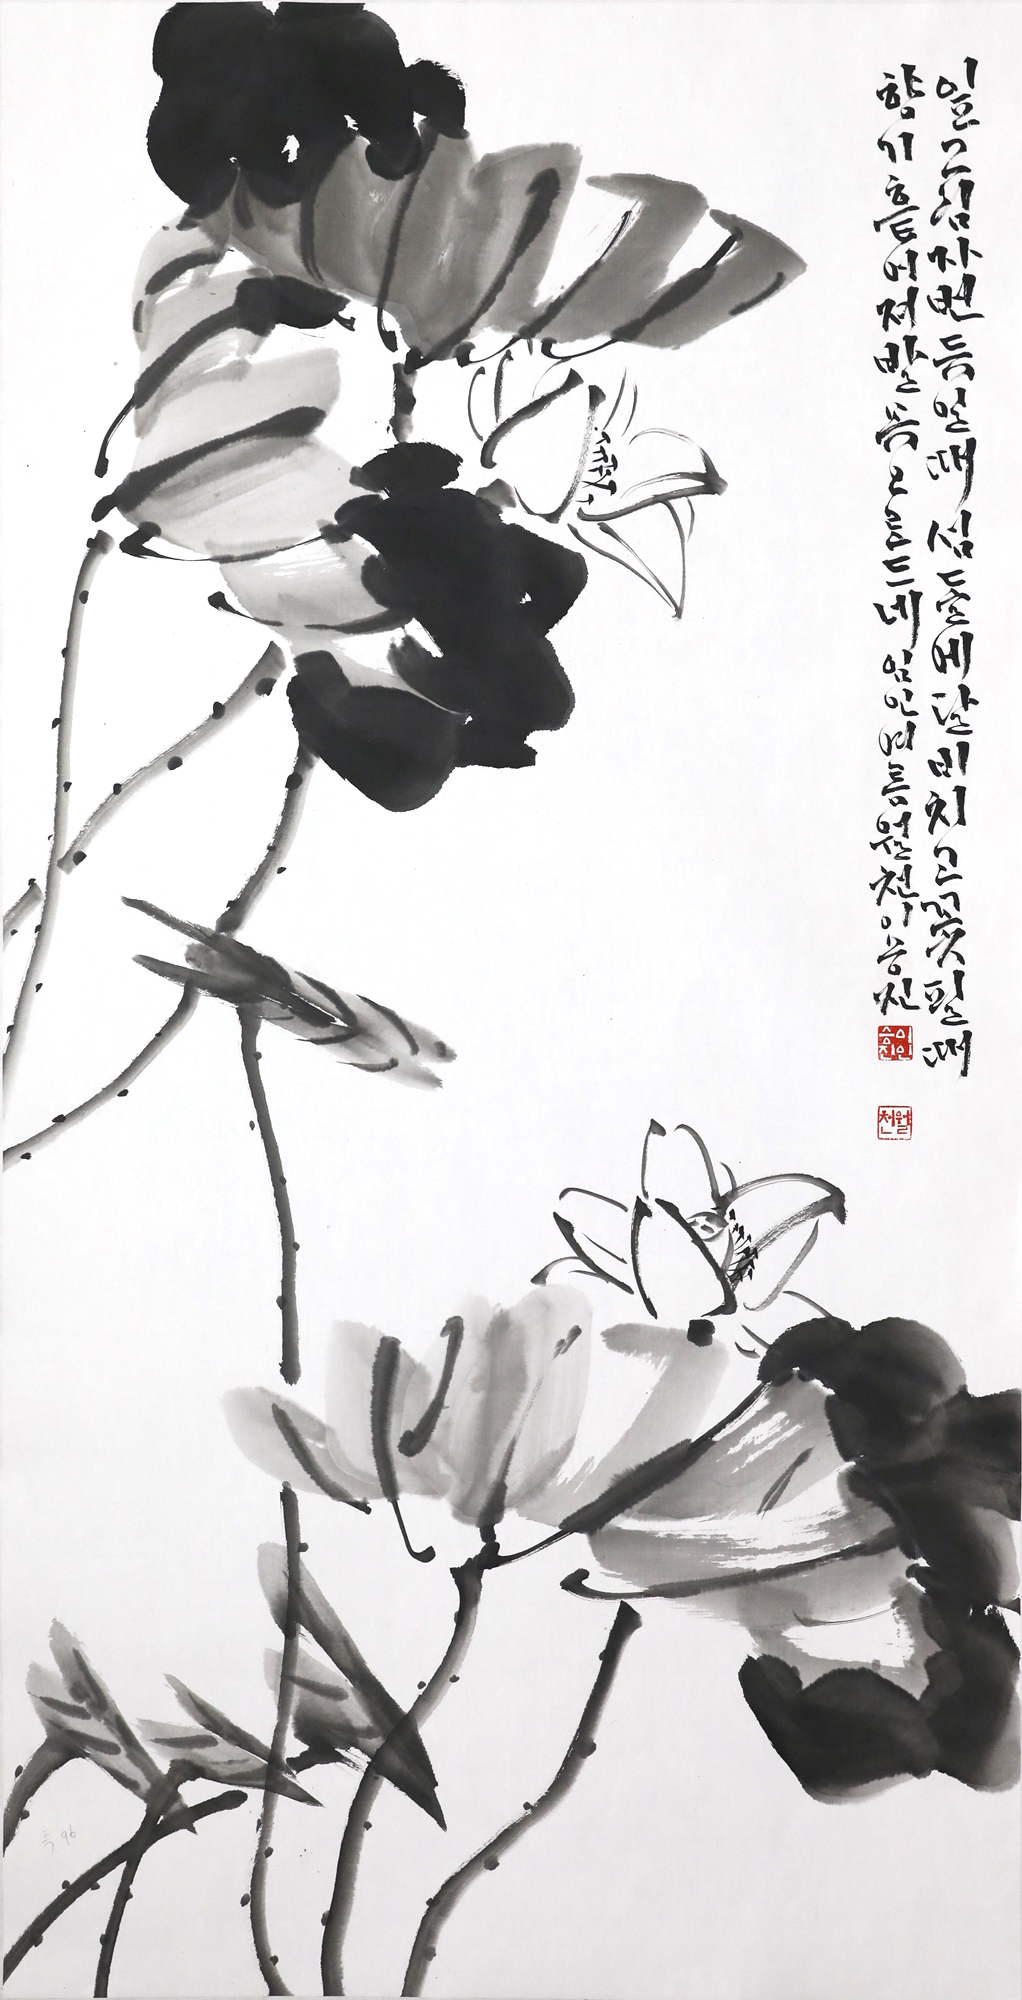 잎그림자번득일때섬돌에달비치고꽃필때
향기흩어져발틈으로드네 임인여름월천이승진
이승진인
월천
96